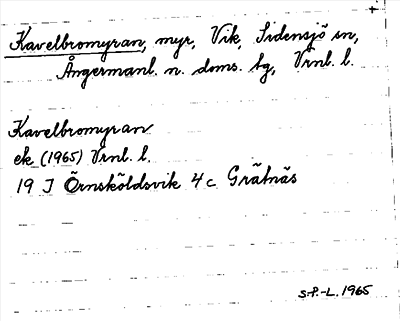 Kavelbromyran, myr, Vik, Sidensjö sn,
Ångermanl. n. doms. bg, Vrnl. l.
Kavelbromyran
ek (1965) Vrnl. l.
19 J Örnsköldsvik 4 c Grätnäs
S.P.-L. 1965